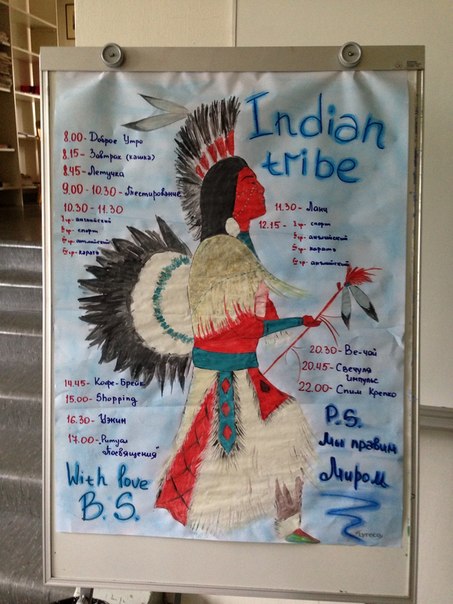 Indian
tribe
8.00 - Доброе Утро
8.15 - Завтрак (кашка)
8.45 - Летучка
9.00 - 10.30 - Тестирование
10.30 - 11.30
английский
спорт
английский
карате
11.30 - Ланч
12.15 -
спорт
английский
карате
английский
14.45 - Кофе-Брейк
15.00 - Shopping
16.30 - Ужин
17.00 - Ритуал
"Посвящения"
20.30 - Ве-чай
20.45 - Свечуля
импульс
22.00 - Спим Крепко
With love
B.S.
P.S.
Мы правим
Миром